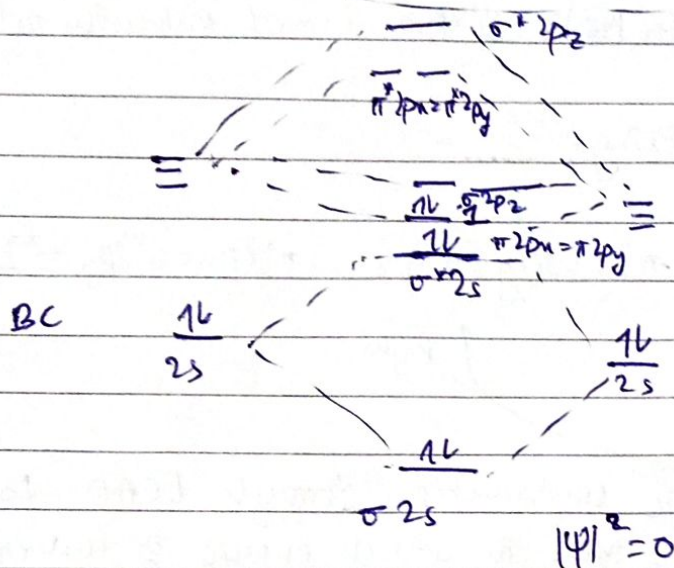 σ* 2pz
π*2px=π*2py
1L σ2pz
1L π2px=π2py
σ*2s
BC
1L
2s
1L
2s
1L
σ2s
|ψ|²=0